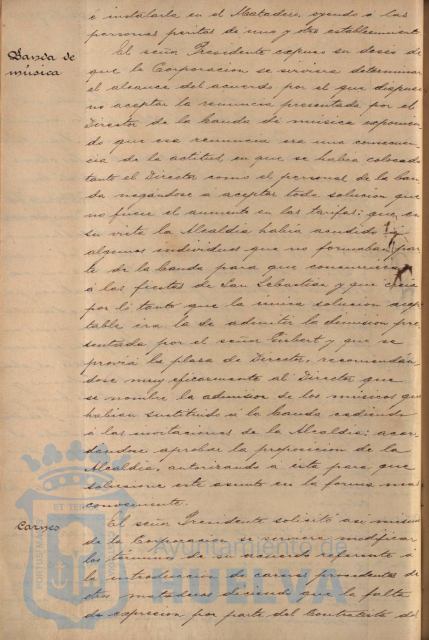 é instalarla en el Matadero, oyendo a las
personas peritas de uno y otro establecimiento
Banda de
música
El señor Presidente expuso su deseo de
que la Corporación se sirviera determinar
el alcance del acuerdo por el que dispuso
no aceptar la renuncia presentada por el
Director de la banda de música exponien
do que esa renuncia era una consecuen
cia de la actitud en que se había colocado
tanto el Director como el personal de la ban
da negándose á aceptar toda solución que
no fuese el aumento en las tarifas: que, en
su vista la Alcaldía había acudido á
algunos individuos que no formaban par
te de la banda para que concurrieran
á las fiestas de San Sebastian y que creia
por lo tanto que la única solución acep
table era la de admitir la dimisión pre
sentada por el señor Gisbert y que se
provea la plaza de Director, recomendán
dose muy eficazmente al Director que
se nombre la admisión de los músicos que
habían sustituido á la banda cediendo
á las invitaciones de la Alcaldía: acor
dándose aprobar la proposición de la
Alcaldía, autorizando á esta para que
solucione este asunto en la forma mas
conveniente.
Carnes
El señor Presidente solicitó asi mismo
de la Corporación se sirviera modificar
los términos referente á
la introducción de carnes procedentes de
otros mataderos diciendo que la falta
de expresion por parte del Contratista de
Ayuntamiento de
HUELVA